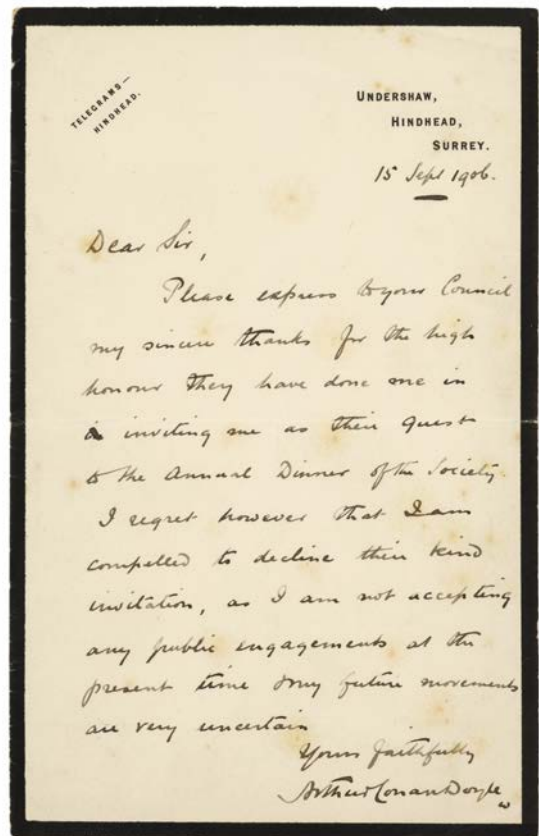 TELEGRAMS—
HINDHEAD.
UNDERSHAW,
HINDHEAD,
SURREY.
15 Sept 1906.
Dear Sir,
Please express to your Council
my sincere thanks for the high
honour they have done me in
inviting me as their guest
to the Annual Dinner of the Society.
I regret however that I am
compelled to decline their kind
invitation, as I am not accepting
any public engagements at the
present time & my future movements
are very uncertain
Yours faithfully
Arthur Conan Doyle